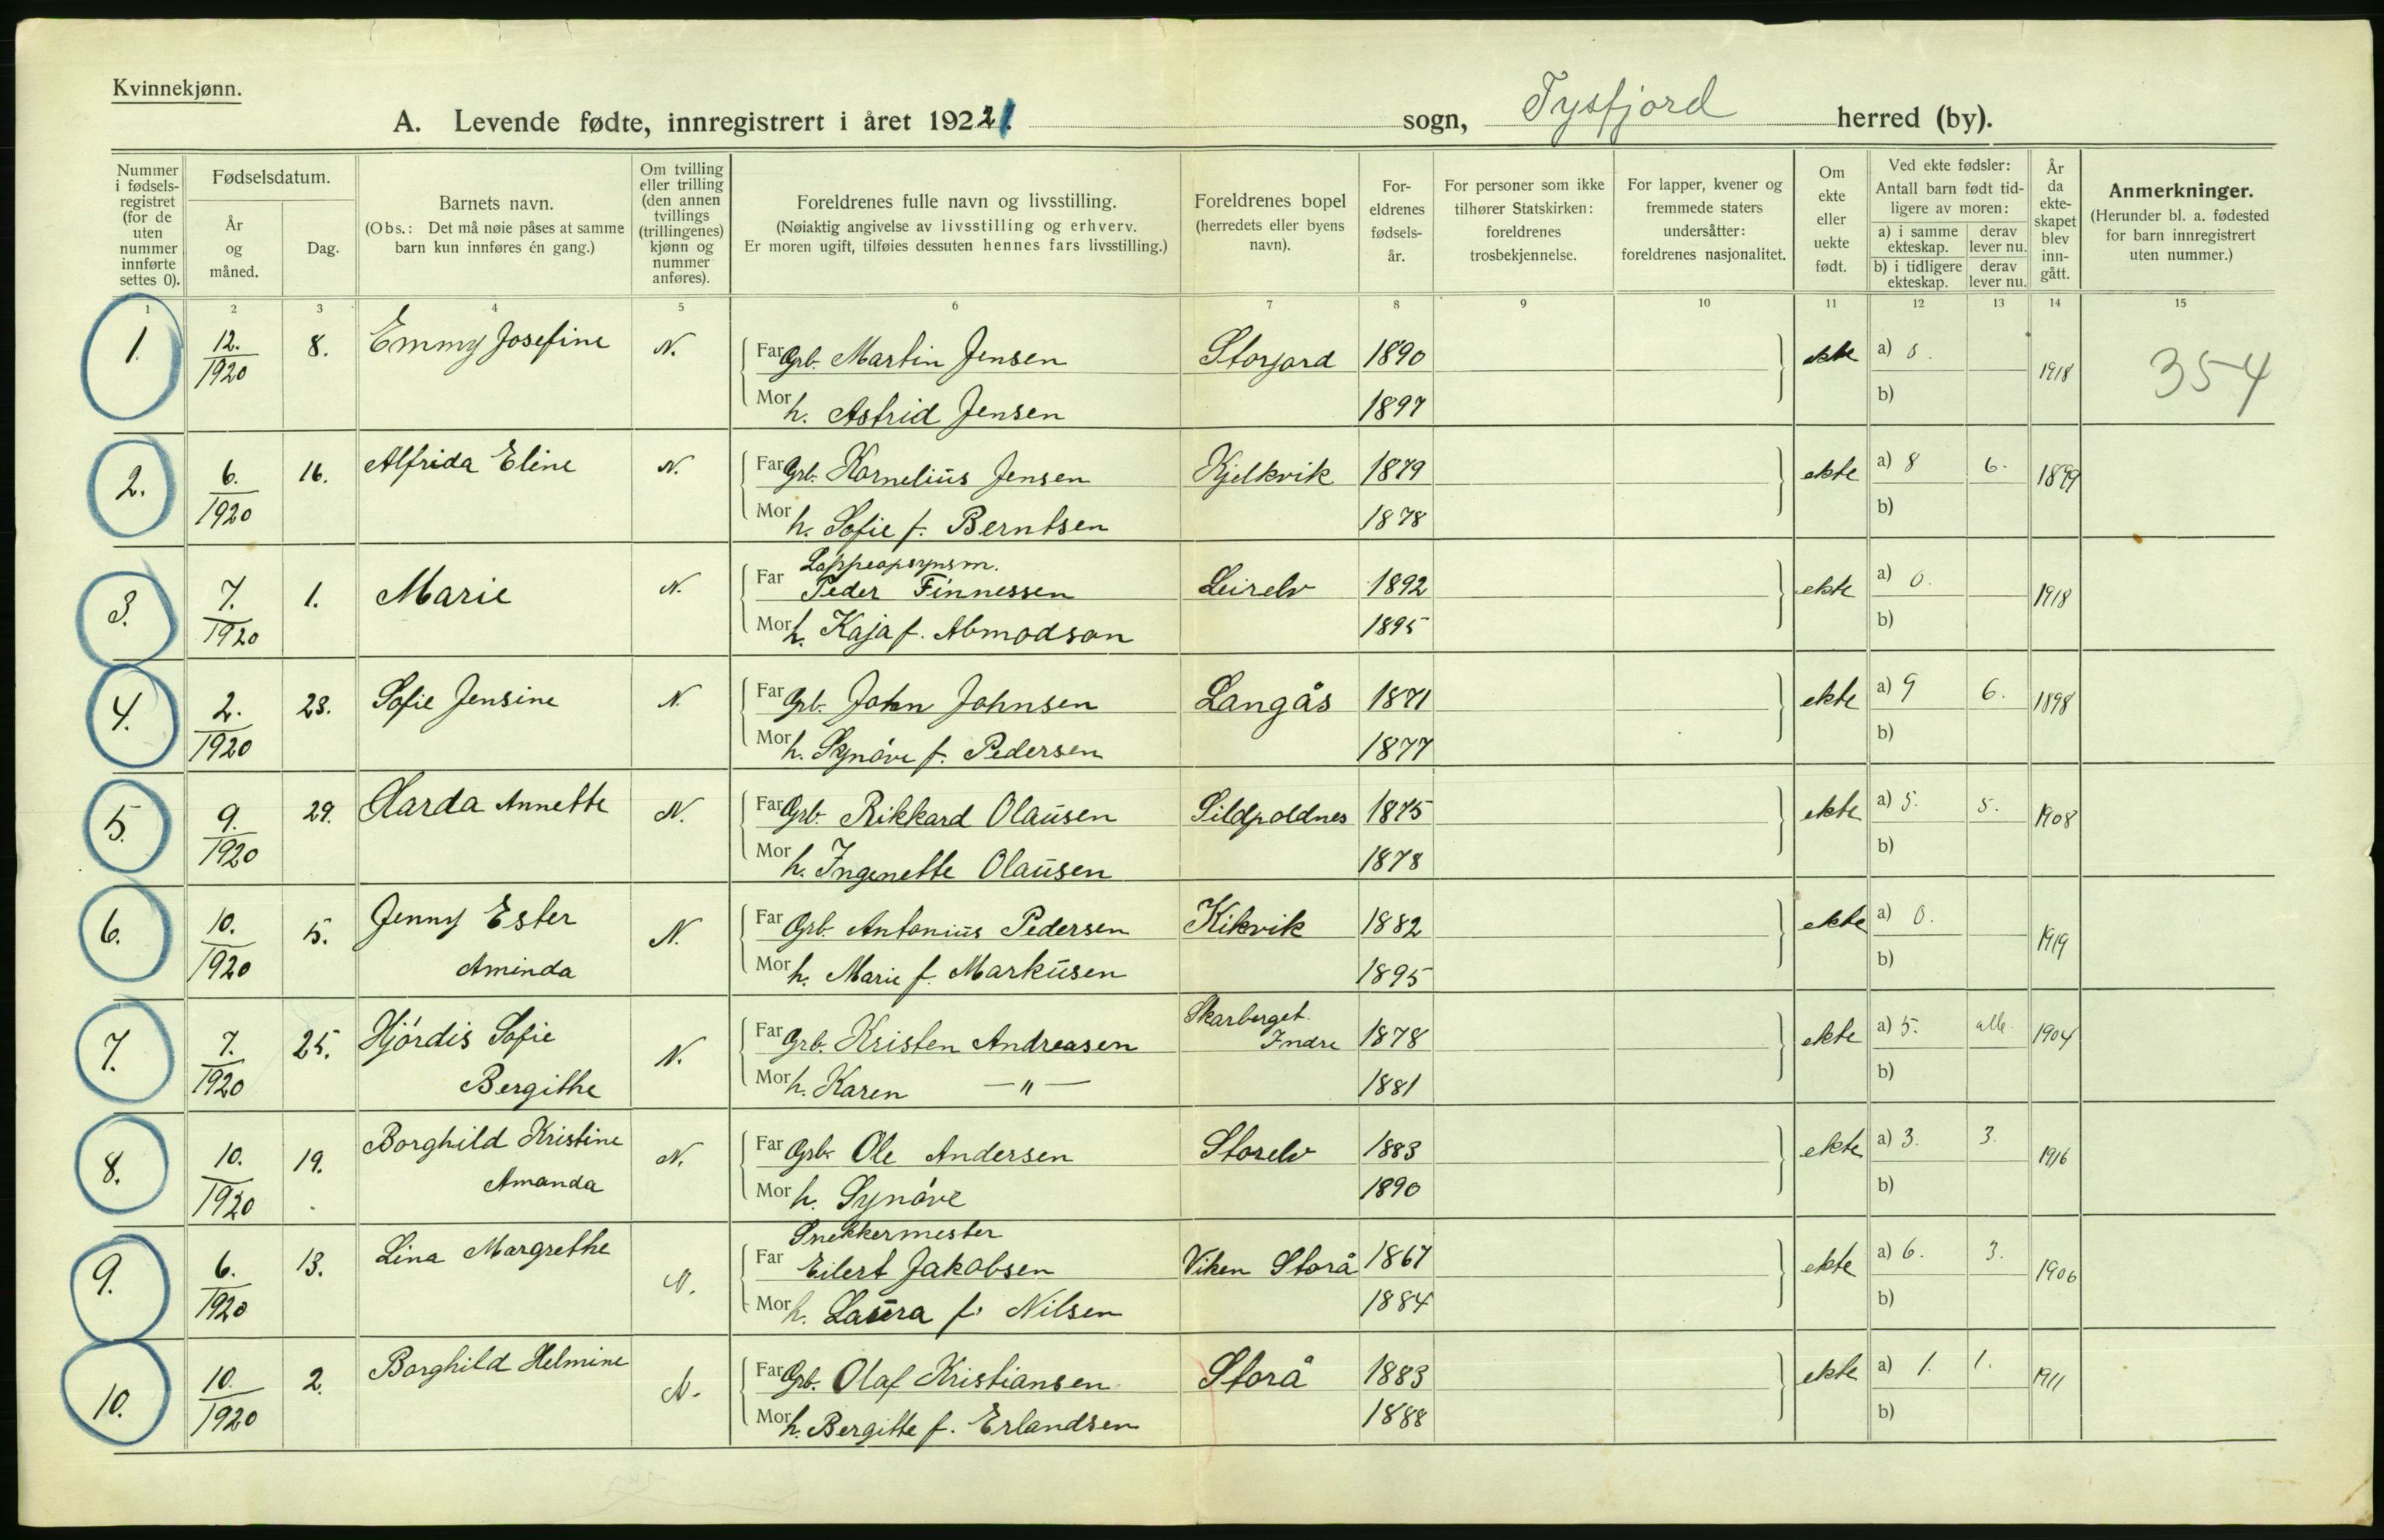 Kvinnekjønn.
A. Levende fødte, innregistrert i året 1922 1. sogn, Tysfjord herred (by).
Nummer i fødselsregistret (for de uten nummer innførte settes 0).
Fødselsdatum.
År og måned.
Dag.
Barnets navn.
(Obs.: Det må nøie påses at samme barn kun innføres én gang.)
Om tvilling eller trilling (den annen tvillings (trillingenes) kjønn og nummer anføres).
Foreldrenes fulle navn og livsstilling.
(Nøiaktig angivelse av livsstilling og erhverv.
Er moren ugift, tilføies dessuten hennes fars livsstilling.)
Foreldrenes bopel (herredets eller byens navn).
Foreldrenes fødselsår.
For personer som ikke tilhører Statskirken: foreldrenes trosbekjennelse.
For lapper, kvener og fremmede staters undersåtter: foreldrenes nasjonalitet.
Om ekte eller uekte født.
Ved ekte fødsler:
Antall barn født tidligere av moren:
a) i samme ekteskap. derav lever nu.
b) i tidligere ekteskap. derav lever nu.
År da ekteskapet blev inngått.
Anmerkninger.
(Herunder bl. a. fødested for barn innregistrert uten nummer.)
1 2 3 4 5 6 7 8 9 10 11 12 13 14 15
1. 12. 1920 8. Emmy Josefine N. Far Grb. Martin Jensen Storjord 1890 ekte a) 0. 1918 354
Mor h. Astrid Jensen 1897 b)
2. 6. 1920 16. Alfrida Eline N. Far Grb. Kornelius Jensen Kjelkvik 1879 ekte a) 8 6. 1899
Mor h. Sofie f. Berntsen 1878 b)
Lappeopsynsm.
3. 7. 1920 1. Marie N. Far Peder Finnessen Leirelv 1892 ekte a) 0. 1918
Mor h. Kaja f. Abmodson 1895 b)
4. 2. 1920 23. Sofie Jensine N. Far Grb. John Johnsen Langås 1871 ekte a) 9 6. 1898
Mor h. Synöve f. Pedersen 1877 b)
5. 9. 1920 29. Harda Annette N. Far Grb. Rikkard Olausen Sildpoldnes 1875 ekte a) 5. 5. 1908
Mor h. Ingenette Olausen 1878 b)
6. 10. 1920 5. Jenny Ester N. Far Grb. Antonius Pedersen Kikvik 1882 ekte a) 0. 1919
Aminda Mor h. Marie f. Markusen 1895 b)
Skarberget.
7. 7. 1920 25. Hjördis Sofie N. Far Grb. Kristen Andreasen Indre 1878 ekte a) 5. alle 1904
Bergithe Mor h. Karen — " — 1881 b)
8. 10. 1920 19. Borghild Kristine N. Far Grb. Ole Andersen Storelv 1883 ekte a) 3. 3. 1916
Amanda Mor h. Synöve 1890 b)
Snekkermester
9. 6. 1920 13. Lina Margrethe N. Far Eilert Jakobsen Viken Storå 1867 ekte a) 6. 3. 1906
Mor h. Laura f. Nilsen 1884 b)
10. 10. 1920 2. Borghild Helmine N. Far Grb. Olaf Kristiansen Storå 1883 ekte a) 1. 1. 1911
Mor h. Bergitte f. Erlandsen 1888 b)